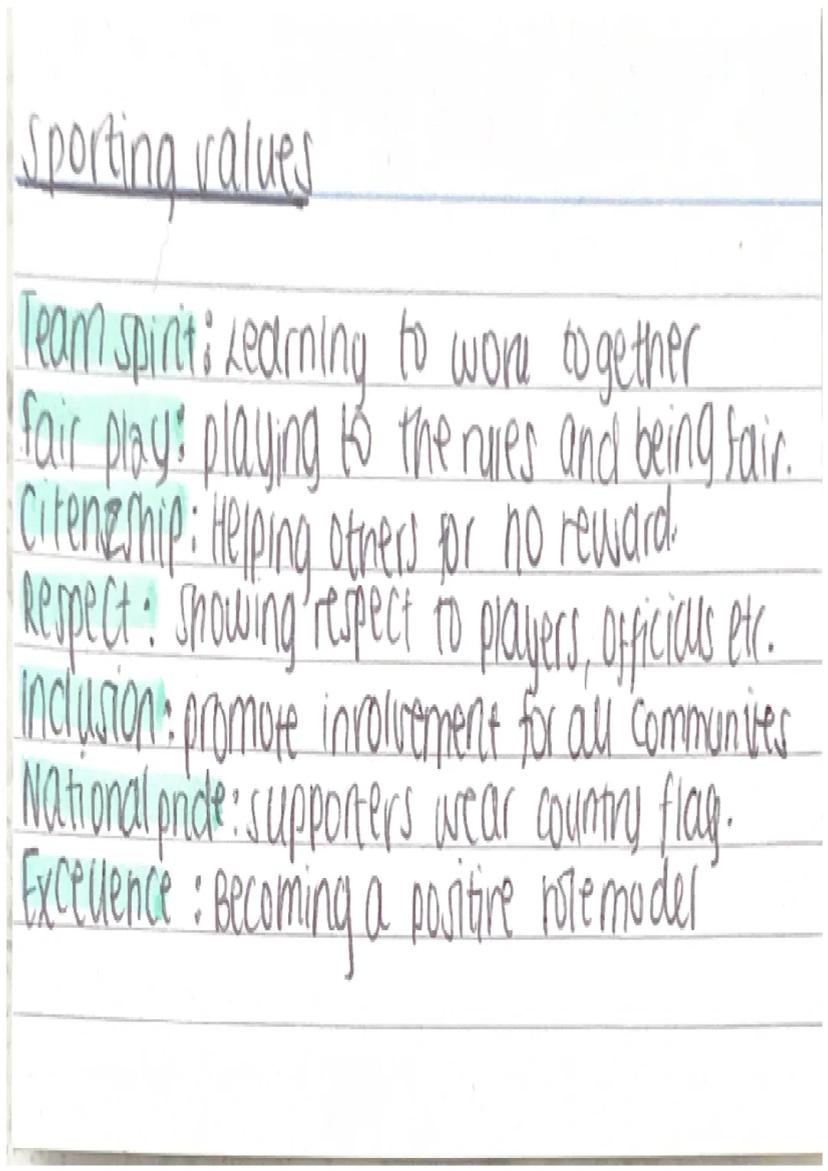 Sporting values
Team spirit: Learning to work together
fair play: playing to the rules and being fair.
Citenzship: Helping others for no reward.
Respect: showing respect to players, officials etc.
inclusion: promote involvement for all communities
National pride: supporters wear country flag.
Excellence: Becoming a positive role model